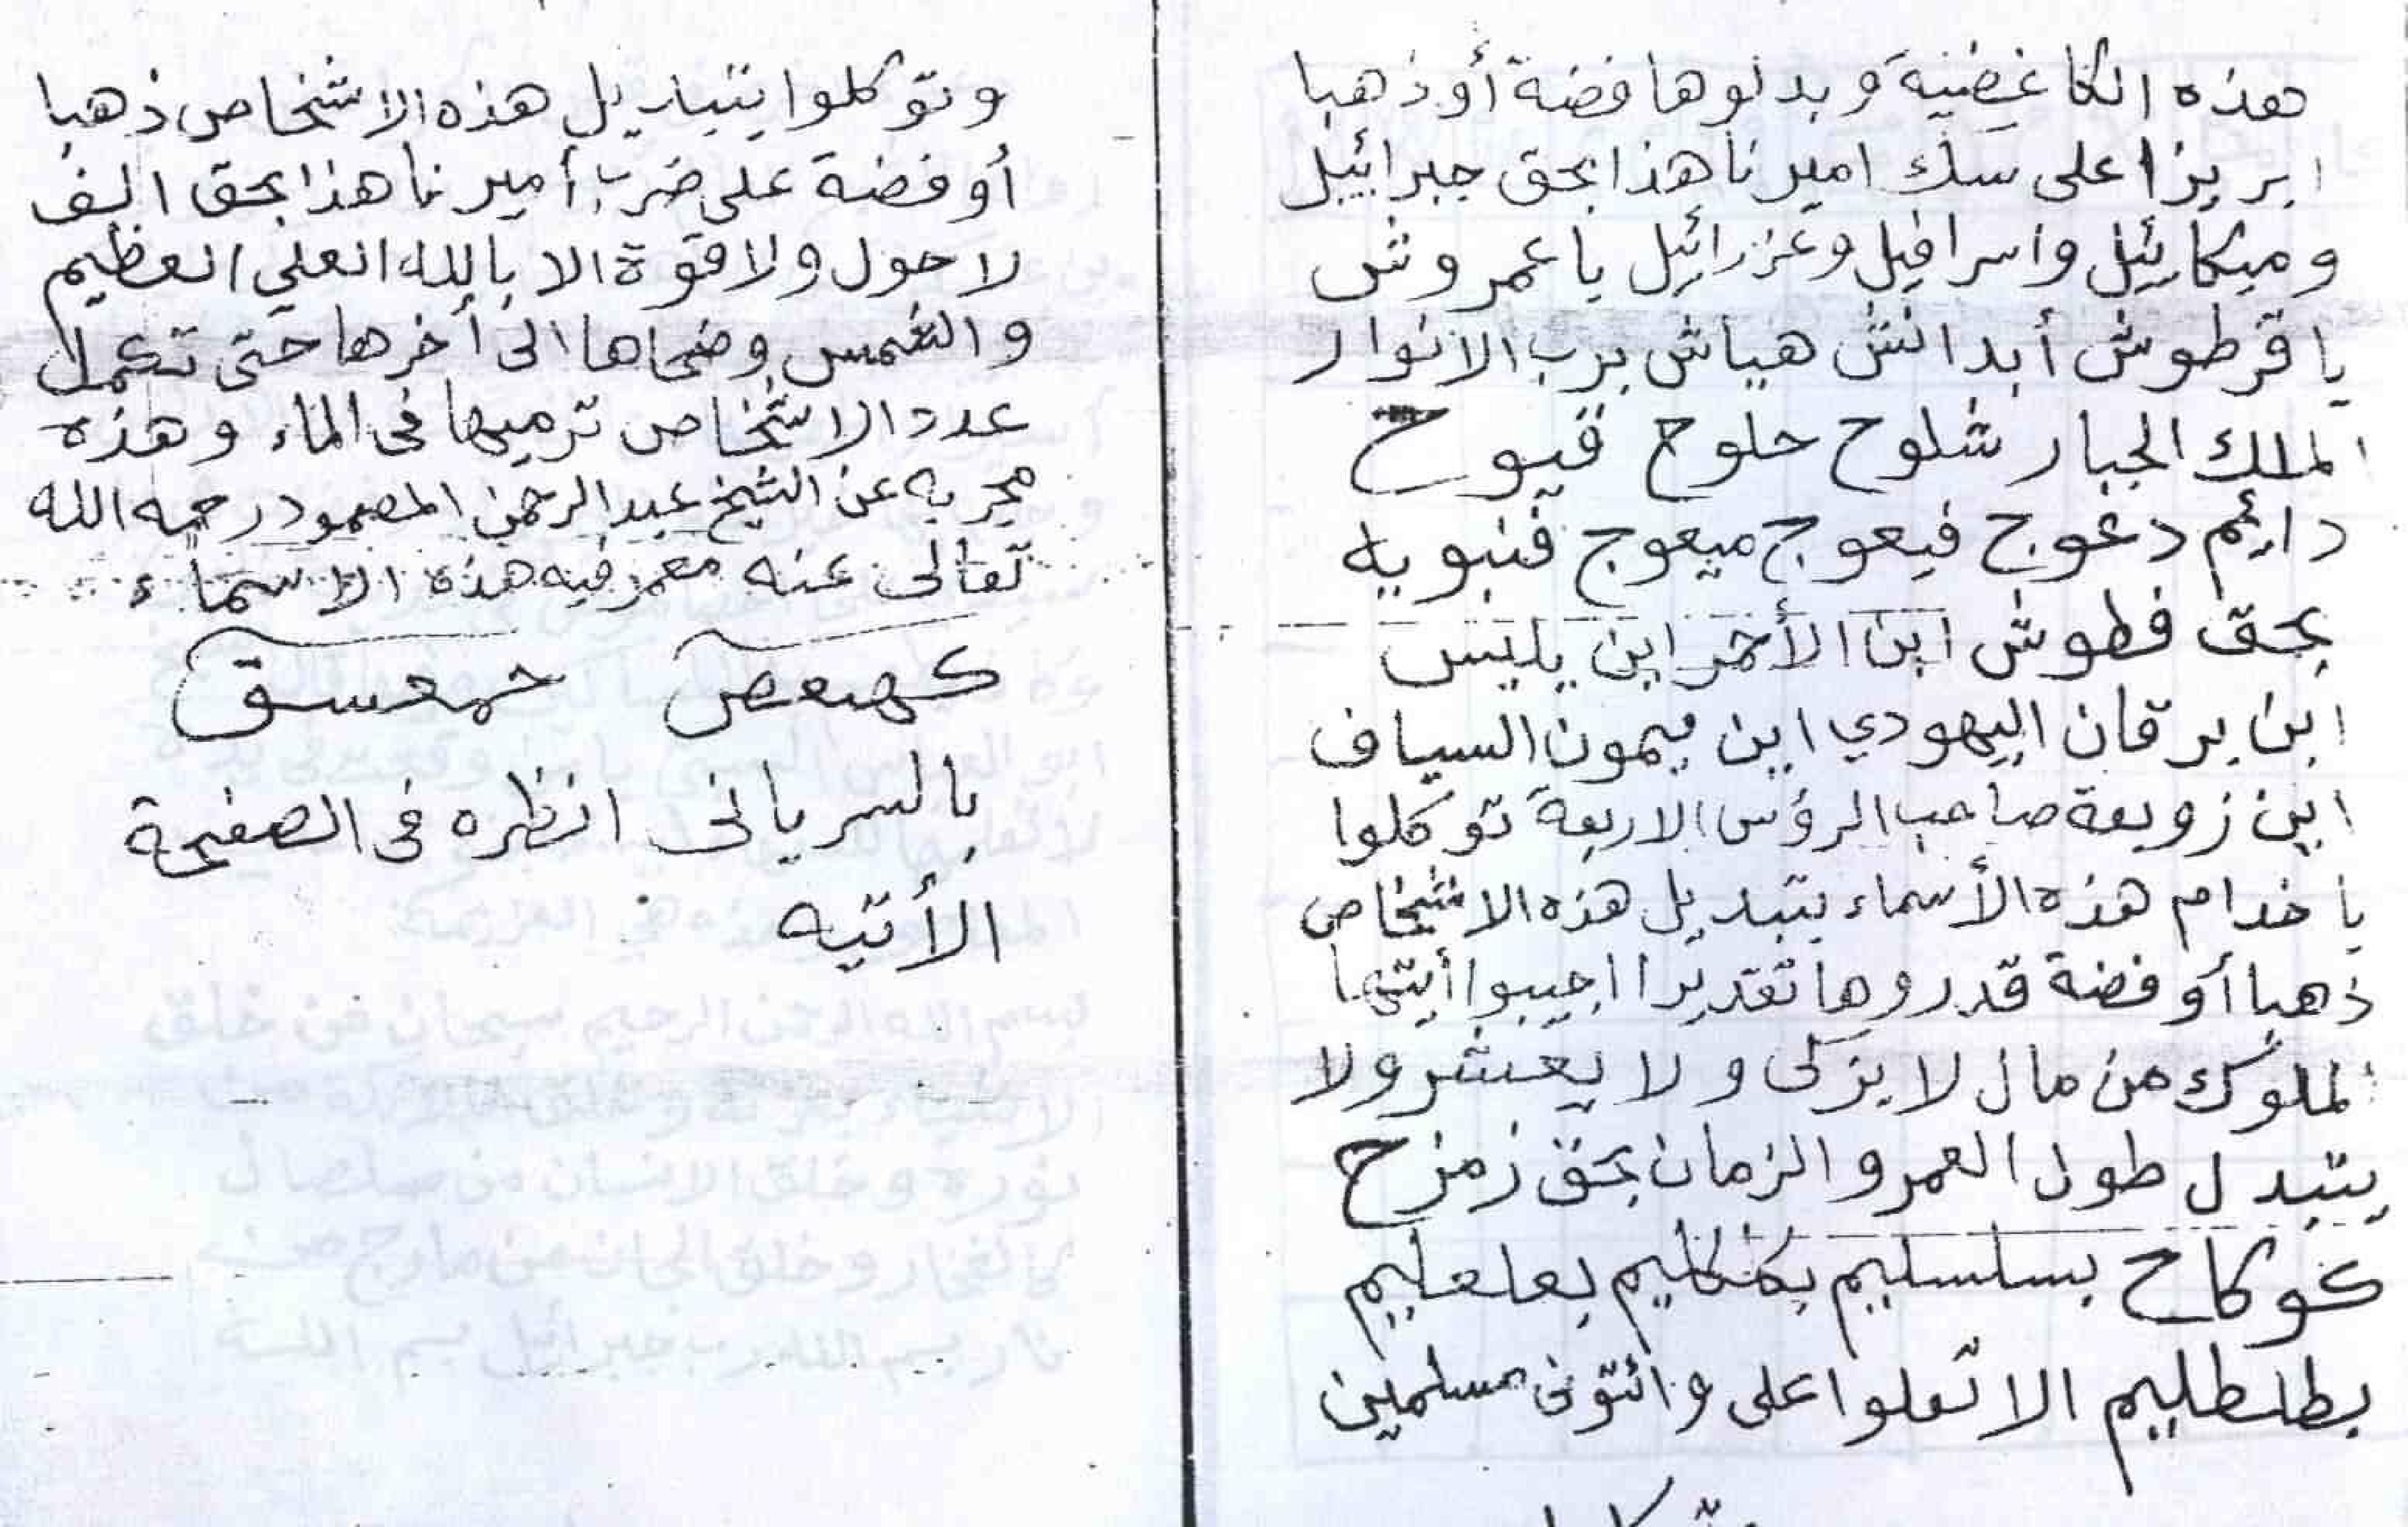 هذه الكاغضية وبدلوها فضة أو ذهبا
ابريزا على سكك اميرنا هذا بحق جبرائيل
وميكائيل واسرافيل وعزرائيل يا عمروش
يا قرطوش أبدانش هياش برب الانوار
الملك الجبار شلوح حلوح قيوح
دايئم دعوج فيعوج ميعوج فنبويه
بحق فطوش ابن الأحمر ابن يليس
ابن برقان اليهودي ابن ميمون السياف
ابن زوبعة صاحب الرؤس الاربعة توكلوا
يا خدام هذه الأسماء بتبديل هذه الاشخاص
ذهبا أو فضة قدروها تقديرا اجيبوا أيتها
الملوك من مال لا يزكى ولا يعشر ولا
يتبدل طول العمر والزمان بحق زمزح
كوكاح بسلسليم بكلكليم بعلعليم
بطلطليم الا تعلوا على وائتونى مسلمين
وتوكلوا بتبديل هذه الاشخاص ذهبا
أو فضة على ضرب أميرنا هذا بحق الف
لا حول ولا قوة الا بالله العلي العظيم
والشمس وضحاها الى أخرها حتى تكمل
عدد الاشخاص ترميها فى الماء وهذه
مجربه عن الشيخ عبد الرحمن المصمود رحمه الله
تعالى عنه فيه هذه الاسماء
كهيعص حمعسق
بالسريانى انظره فى الصفيحة
الأتيه